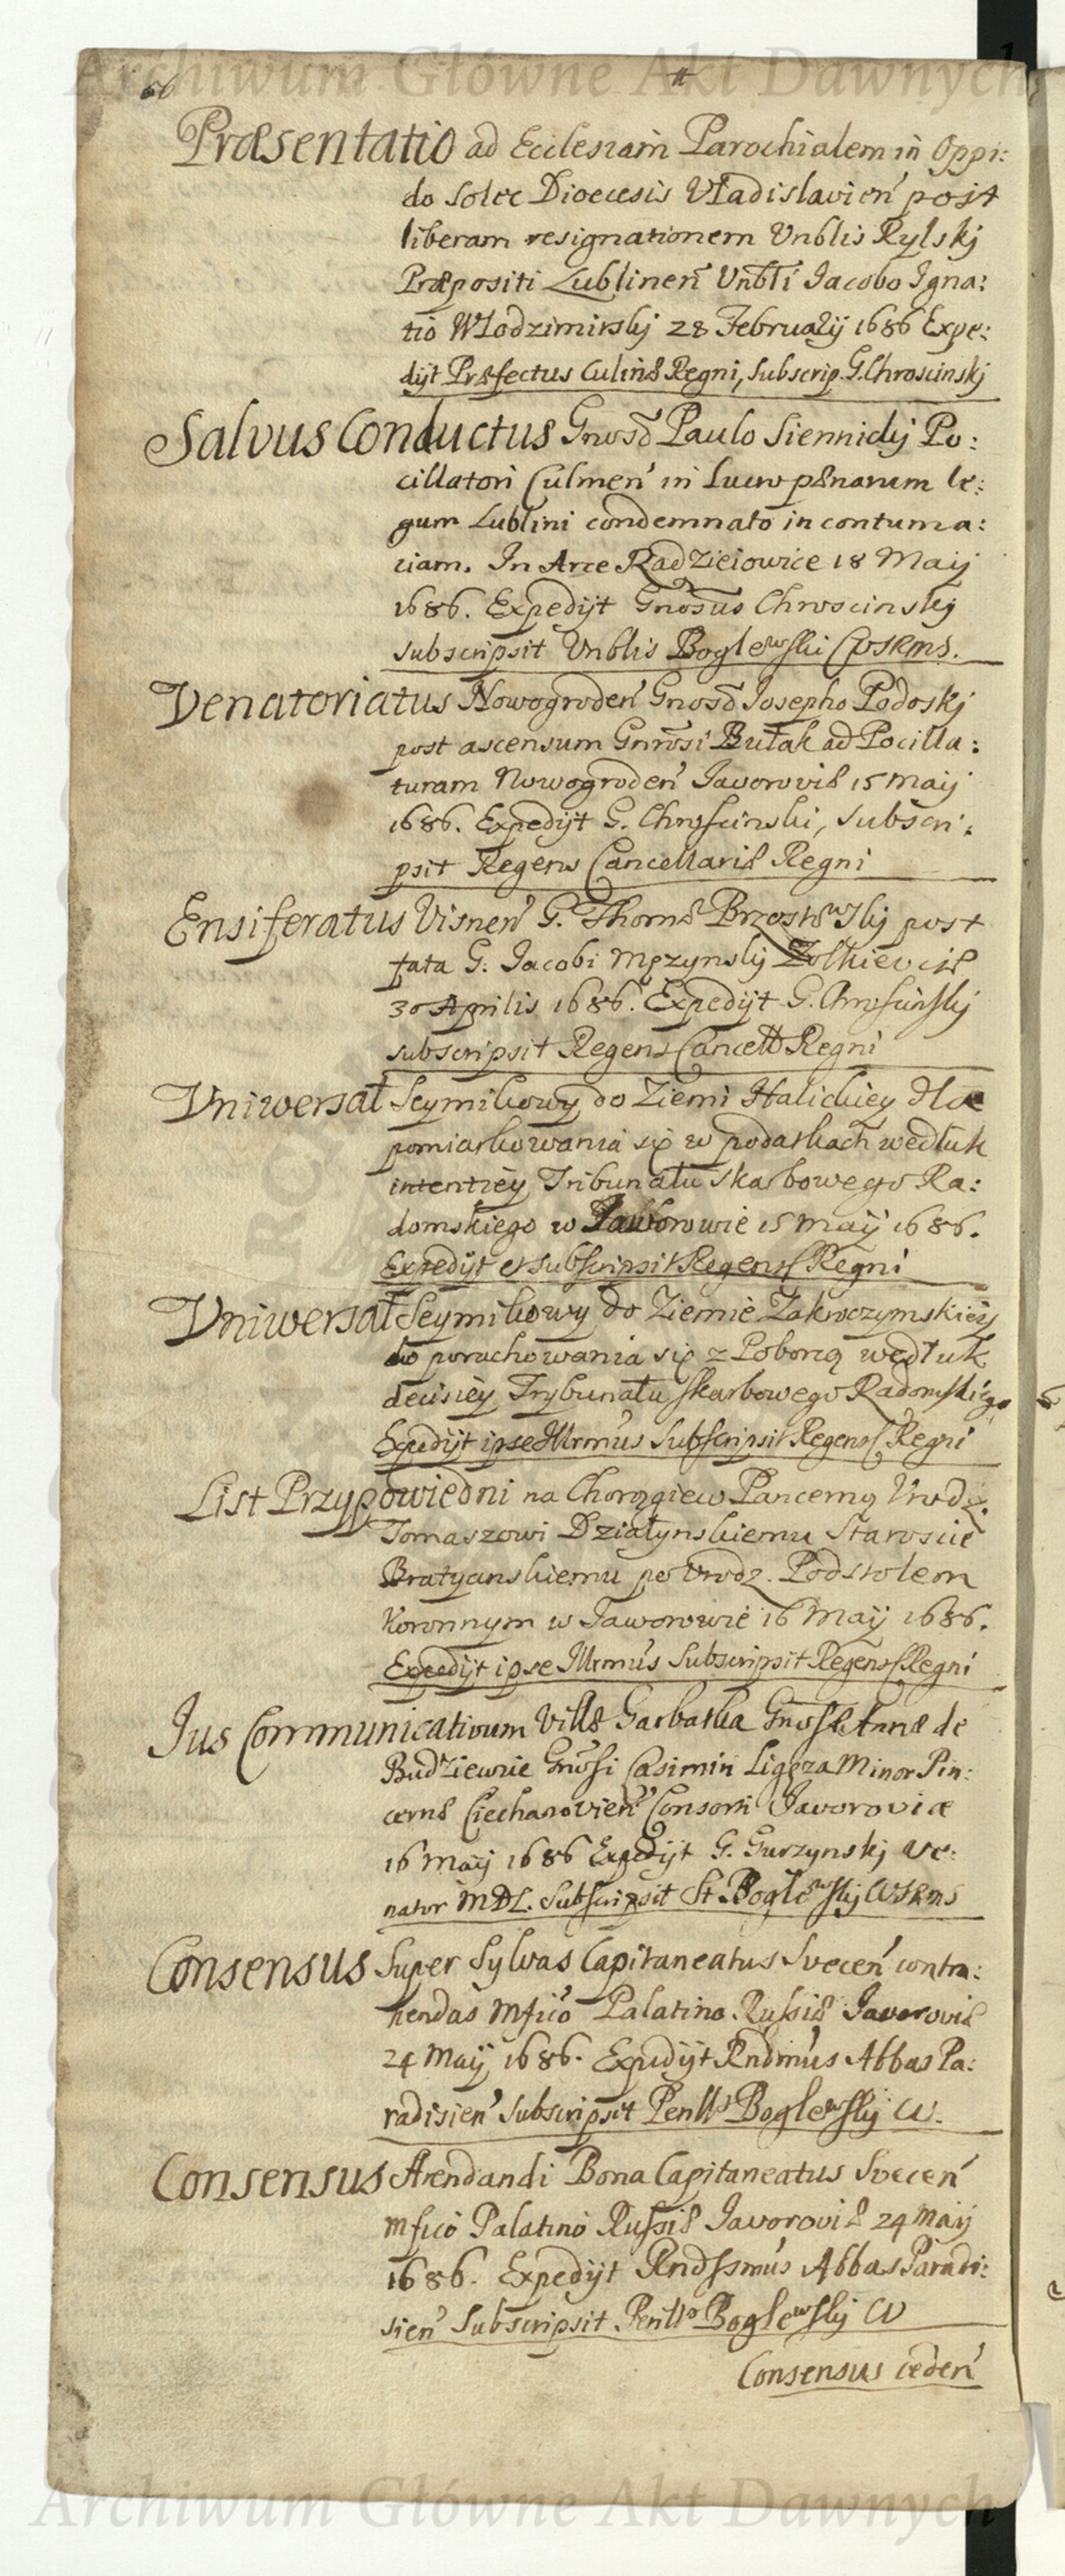 Archiwum Główne Akt Dawnych
66
Præsentatio ad Ecclesiam Parochialem in Oppi:
do Solec Diœcesis Vladislavien̄ post
liberam resignationem Vnblis Rylskj
Præpositi Lublinen̄ Vnblī Jacobo Igna:
tio Wlodzimirskj 28 Februarÿ 1686 Expe:
dÿt Præfectus Culinæ Regni, Subscrip. G. Chroscinskj
Salvus Conductus Gnosō Paulo Siennickj Po:
cillatori Culmen̄ in Lucro pænarum le:
gum Lublini condemnato in contuma:
ciam. In Arce Radzieiowice 18 Maÿ
1686. Expedÿt Gnosus Chroscinskj
subscripsit Vnblis Boglewski CPSRMS.
Venatoriatus Nowogroden̄ Gnosō Josepho Podoskj
post ascensum Gnrosi Bułak ad Pocilla:
turam Nowogroden̄ Javoroviæ 15 Maÿ
1686. Expedÿt G. Chrosciński, Subscri:
psit Regens Cancellariæ Regni
Ensiferatus Visnen̄ G. Thomæ Brzostowskj post
fata G. Jacobi Mężynskj Zolkieviæ
30 Aprilis 1686. Expedÿt G. Chrościnskj
subscripsit Regens Cancell Regni
Vniwersał Seymikowy do Ziemi Halickiey dla
pomiarkowania się w podatkach wedłuk
intentiey Tribunału Skarbowego Ra:
domskiego w Jaworowie 15 Maÿ 1686.
Expedÿt et subscripsit Regens C Regni
Vniwersał Seymikowy do Ziemie Zakroczymskiey
do porachowania się z Poborcą wedłuk
decisiey Trybunału Skarbowego Radomskiego
Expedÿt ipse Illrmus Subscripsit Regens C Regni
List Przypowiedni na Chorągiew Pancerną Vrodz.
Tomaszowi Działynskiemu Staroscie
Bratyanskiemu po Vrodz. Podstolem
Koronnym w Jaworowie 16 Maÿ 1686.
Expedÿt ipse Illrmus Subscripsit Regens C Regni
Jus Communicativum Villæ Garbatka Gnosæ Annæ de
Budziewie Gnosi Casimiri Ligęza Minor Pin:
cernæ Ciechanovien̄ Consorti Javoroviæ
16 Maÿ 1686 Expedÿt G. Gurzynskj Ve:
nator MDL. Subscripsit St. Boglewskj CVSRMS
Consensus Super Sylvas Capitaneatus Svecen̄ contra:
hendas Mfico Palatino Russiæ Javoroviæ
24 Maÿ 1686. Expedÿt Rndmus Abbas Pa:
radisien̄ Subscripsit Perills Boglewskj CV.
Consensus Arendandi Bona Capitaneatus Svecen̄
Mfico Palatino Russiæ Javoroviæ 24 Maÿ
1686. Expedÿt Rndssmus Abbas Paradi:
sien̄ Subscripsit Perills Boglewskj CV
Consensus ceden̄
Archiwum Główne Akt Dawnych